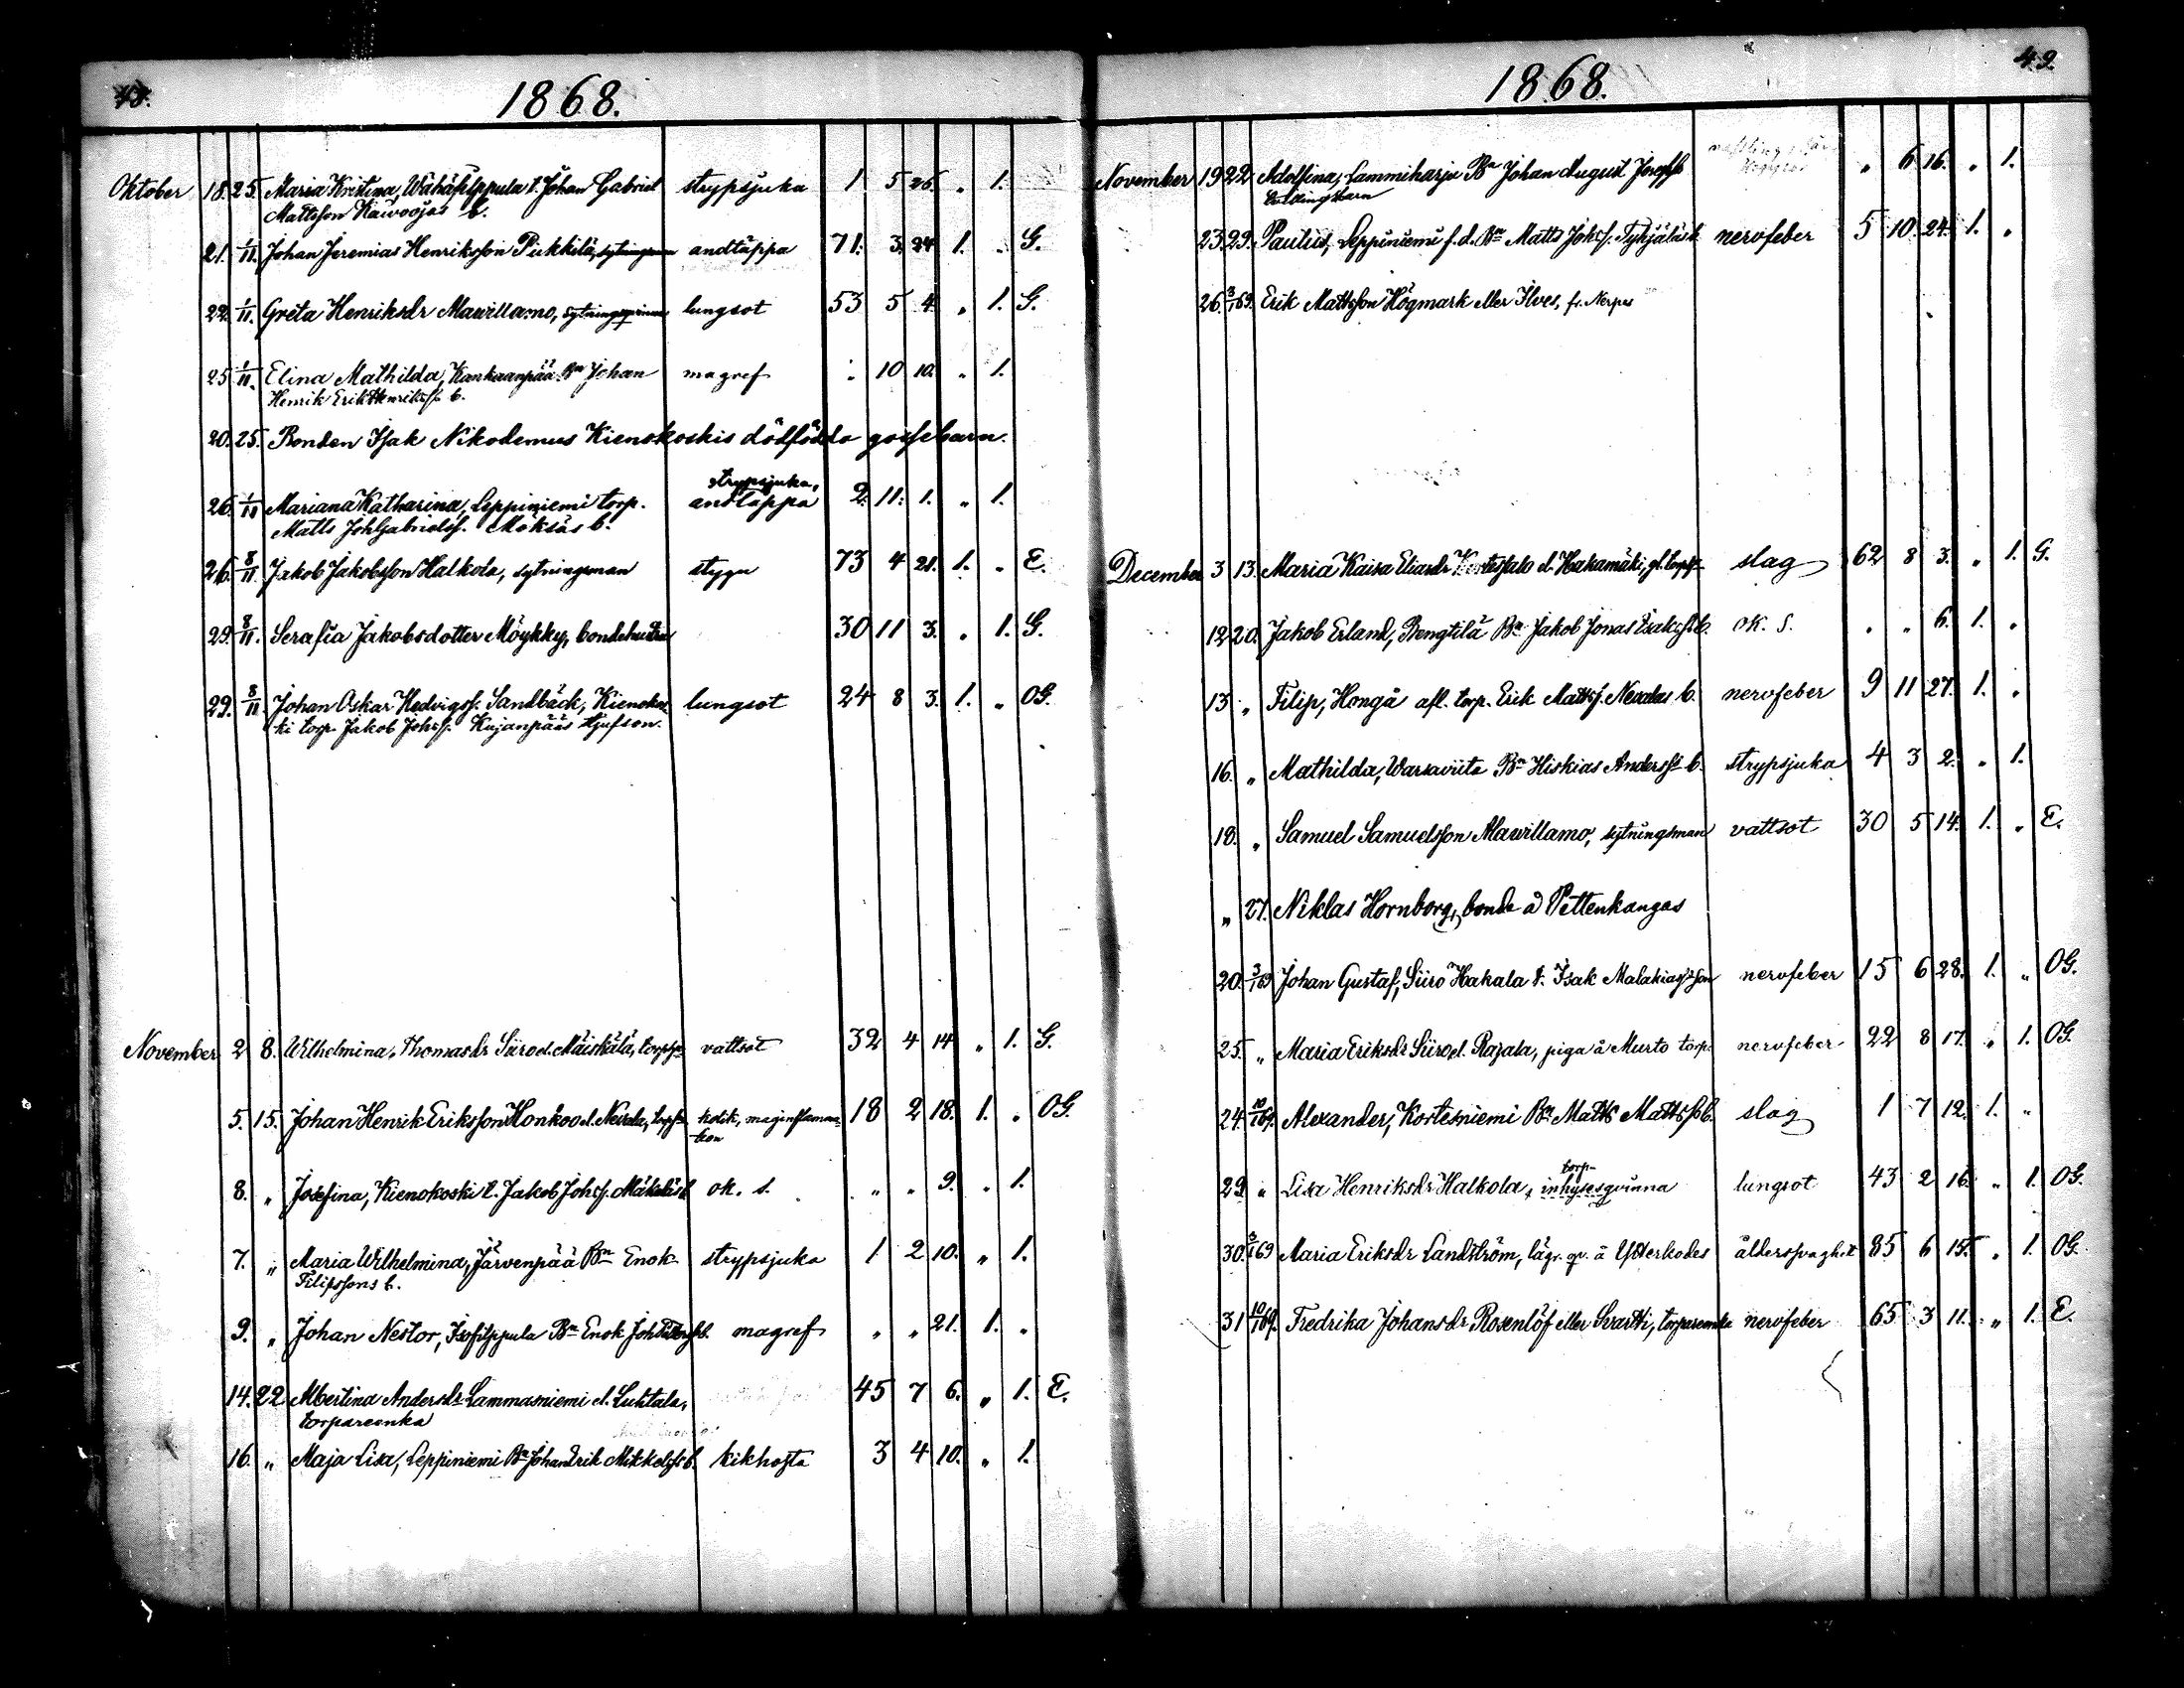 48.
1868.
Oktober 18. 25. Maria Kristina, Wähäfilppula t. Johan Gabriel strypsjuka 1 5 26. „ 1.
Mattsson Kaivoojas b.
21. 1/11. Johan Jeremias Henriksson Pirkkilä, sytningsman andtäppa 71. 3. 24 1. „ G.
22. 1/11. Greta Henriksdr Mawillamo, sytningsqvinna lungsot 53 5 4. „ 1. G.
25 1/11. Elina Mathilda, Kankaanpää Bn Johan magref „ 10 10. „ 1.
Henrik Erik Henrikss. b.
20. 25. Bonden Isak Nikodemus Kienokoskis dödfödda gossebarn.
strypsjuka,
26. 1/11 Mariana Katharina, Leppiniemi torp. andtäppa 2. 11. 1. „ 1.
Matts Joh Gabrielss. Mäkiäs b.
26. 8/11 Jakob Jakobsson Halkola, sytningsman stygn 73 4 21. 1. „ E.
29. 8/11. Serafia Jakobsdotter Möykky, bondehustru 30 11 3. „ 1. G.
29. 8/11. Johan Oskar Hedvigss. Sandbäck, Kienokos- lungsot 24 8 3. 1. „ OG.
ki torp. Jakob Johss. Kujanpääs styfson.
November 2 8. Wilhelmina, Thomasdr Siiro el. Mäiskälä, vattsot 32 4 14 „ 1. G.
5. 15. Johan Henrik Eriksson Honkoo el. Nevala, kolik, maginflamma- 18 2 18. 1. „ OG.
tion
8. „ Josefina, Kienokoski t. Jakob Johss. ok. s. „ „ 9. „ 1.
7. „ Maria Wilhelmina, Järvenpää Bn Enok strypsjuka 1 2 10. „ 1.
Filipssons b.
9. „ Johan Nestor, Isofilppula Bn Enok magref „ „ 21. 1. „
14. 22 Albertina Andersdr Lammasniemi el. Luhtala, 45 7 6. „ 1. E.
torpareenka
16. „ Maja Lisa, Leppiniemi Bn Johan Erik Mikkelss. b. kikhosta 3 4 10. „ 1.
49.
1868.
November 19 22 Adolfina, Lammiharju Bn Johan August Josefss. „ 6 16. „ 1.
tvillingbarn
23. 29. Paulus, Leppiniemi f. d. Bn Matts Johss. nervfeber 5 10. 24. 1. „
26. 3/1 69. Erik Mattsson Högmark eller Ilves, fr. Nerpes
December 3 13. Maria Kaisa Eliasdr Kortessalo el. Hakamäki, gl. slag 62 8 3. „ 1. G.
12 20. Jakob Erland, Bengtilä Bn Jakob Jonas Isakss. b. ok. s. „ „ 6. 1. „
13 „ Filip, Hongå afl. torp. Erik Mattss. Nevalas b. nervfeber 9 11 27. 1. „
16. „ Mathilda, Warsaviita Bn Hiskias Anderss. b. strypsjuka 4 3 2. „ 1.
18. „ Samuel Samuelsson Mawillamo, sytningsman vattsot 30 5 14. 1. „ E.
„ 27. Niklas Hornborg, bonde å Pettenkangas
20. 3/1 69 Johan Gustaf, Siiro Hakala t. Isak Malakiass. son nervfeber 15 6 28. 1. „ OG.
25. „ Maria Eriksdr Siiro el. Rajala, piga å Murto torp. nervfeber 22 8 17. „ 1. OG.
24. 10/1 69. Alexander, Kortesniemi Bn Matts Mattss. b. slag 1 7 12. 1. „
torp-
29 „ Lisa Henriksdr Halkola, inhysesqvinna lungsot 43 2 16. „ 1. OG.
30. 3/1 69 Maria Eriksdr Landström, lägr. qv. å ålderssvaghet 85 6 15. „ 1. OG.
31 10/1 69. Fredrika Johansdr Rosenlöf eller Svartti, torpareenka nervfeber 65 3 11. „ 1. E.